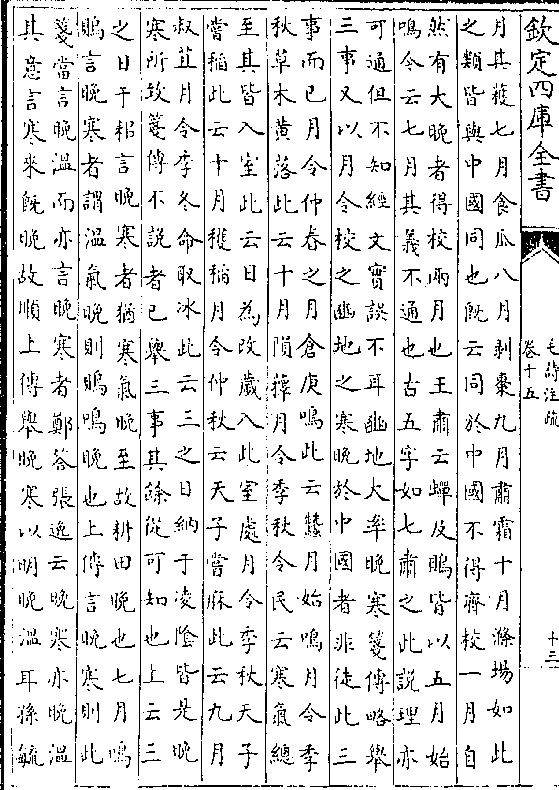 欽定四庫全書
毛詩注疏
卷十五
十三
月其穫七月食瓜八月剥棗九月肅霜十月滌場如此
之類皆與中國同也既云同於中國不得齊校一月自
然有大晚者得校兩月也王肅云蟬及鵙皆以五月始
鳴今云七月其義不通也古五字如七肅之此説理亦
可通但不知經文實誤不耳豳地大率晚寒箋傳略舉
三事又以月令校之豳地之寒晚於中國者非徒此三
事而已月令仲春之月倉庚鳴此云蠶月始鳴月令季
秋草木黄落此云十月隕蘀月令季秋令民云寒氣總
至其皆入室此云曰為改歲入此室處月令季秋天子
嘗稻此云十月穫稻月令仲秋云天子嘗麻此云九月
叔苴月令季冬命取冰此云三之日納于凌隂皆是晚
寒所致箋傳不説者已舉三事其餘從可知也上云三
之日于耜言晚寒者猶寒氣晚至故耕田晚也七月鳴
鵙言晚寒者謂溫氣晚則鵙鳴晚也上傳言晚寒則此
箋當言晚溫而亦言晚寒者鄭荅張逸云晚寒亦晚溫
其意言寒來既晚故順上傳舉晚寒以明晚溫耳孫毓